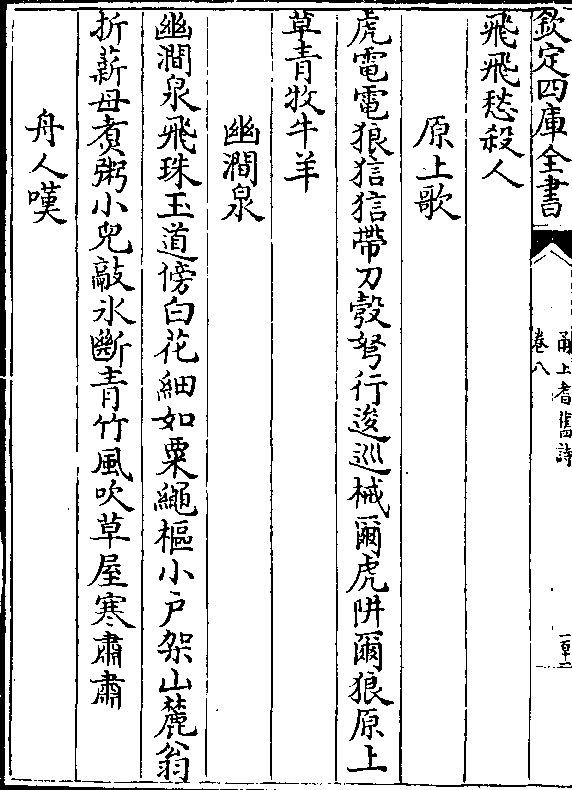 欽定四庫全書
甬上耆舊詩
卷八
飛飛愁殺人
原上歌
虎電電狼狺狺帶刀彀弩行逡巡械爾虎阱爾狼原上
草青牧牛羊
幽澗泉
幽澗泉飛珠玉道傍白花細如粟繩樞小戶架山麓翁
折薪母煮粥小兒敲氷斷青竹風吹草屋寒肅肅
舟人嘆